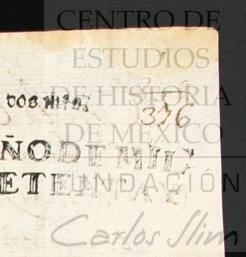 CENTRO DE
ESTUDIOS
DE HISTORIA
DE MÉXICO
FUNDACIÓN
Carlos Slim
DOS MIL
396
ÑO DE MIL
ETE